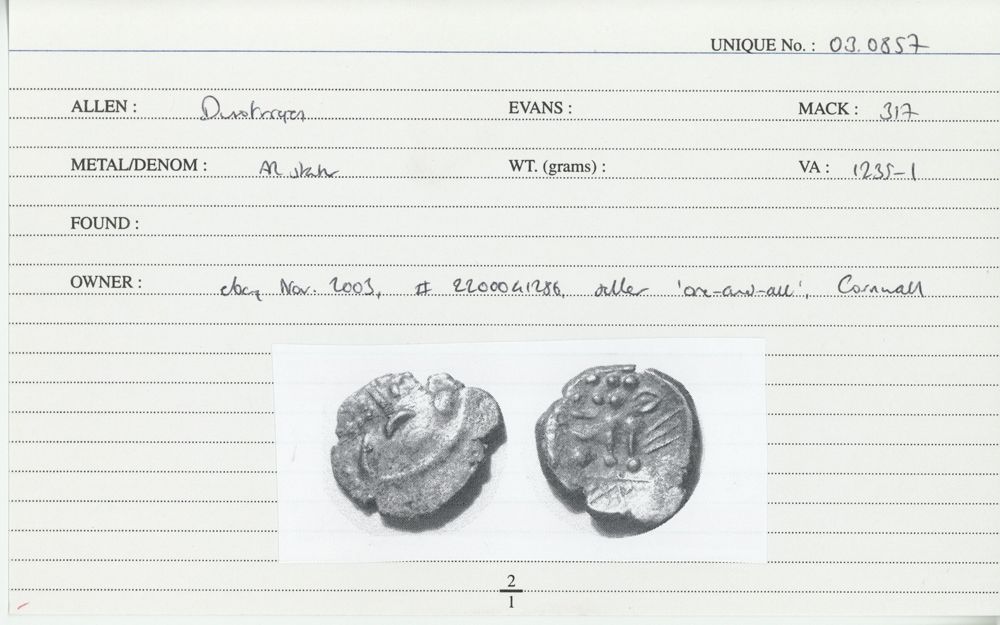 UNIQUE No. : 03.0857
ALLEN : Durotriges EVANS : MACK : 317
METAL/DENOM : AR stater WT. (grams) : VA : 1235-1
FOUND :
OWNER : ebay Nov. 2003, # 2200041286, seller 'one-and-all', Cornwall
2
1